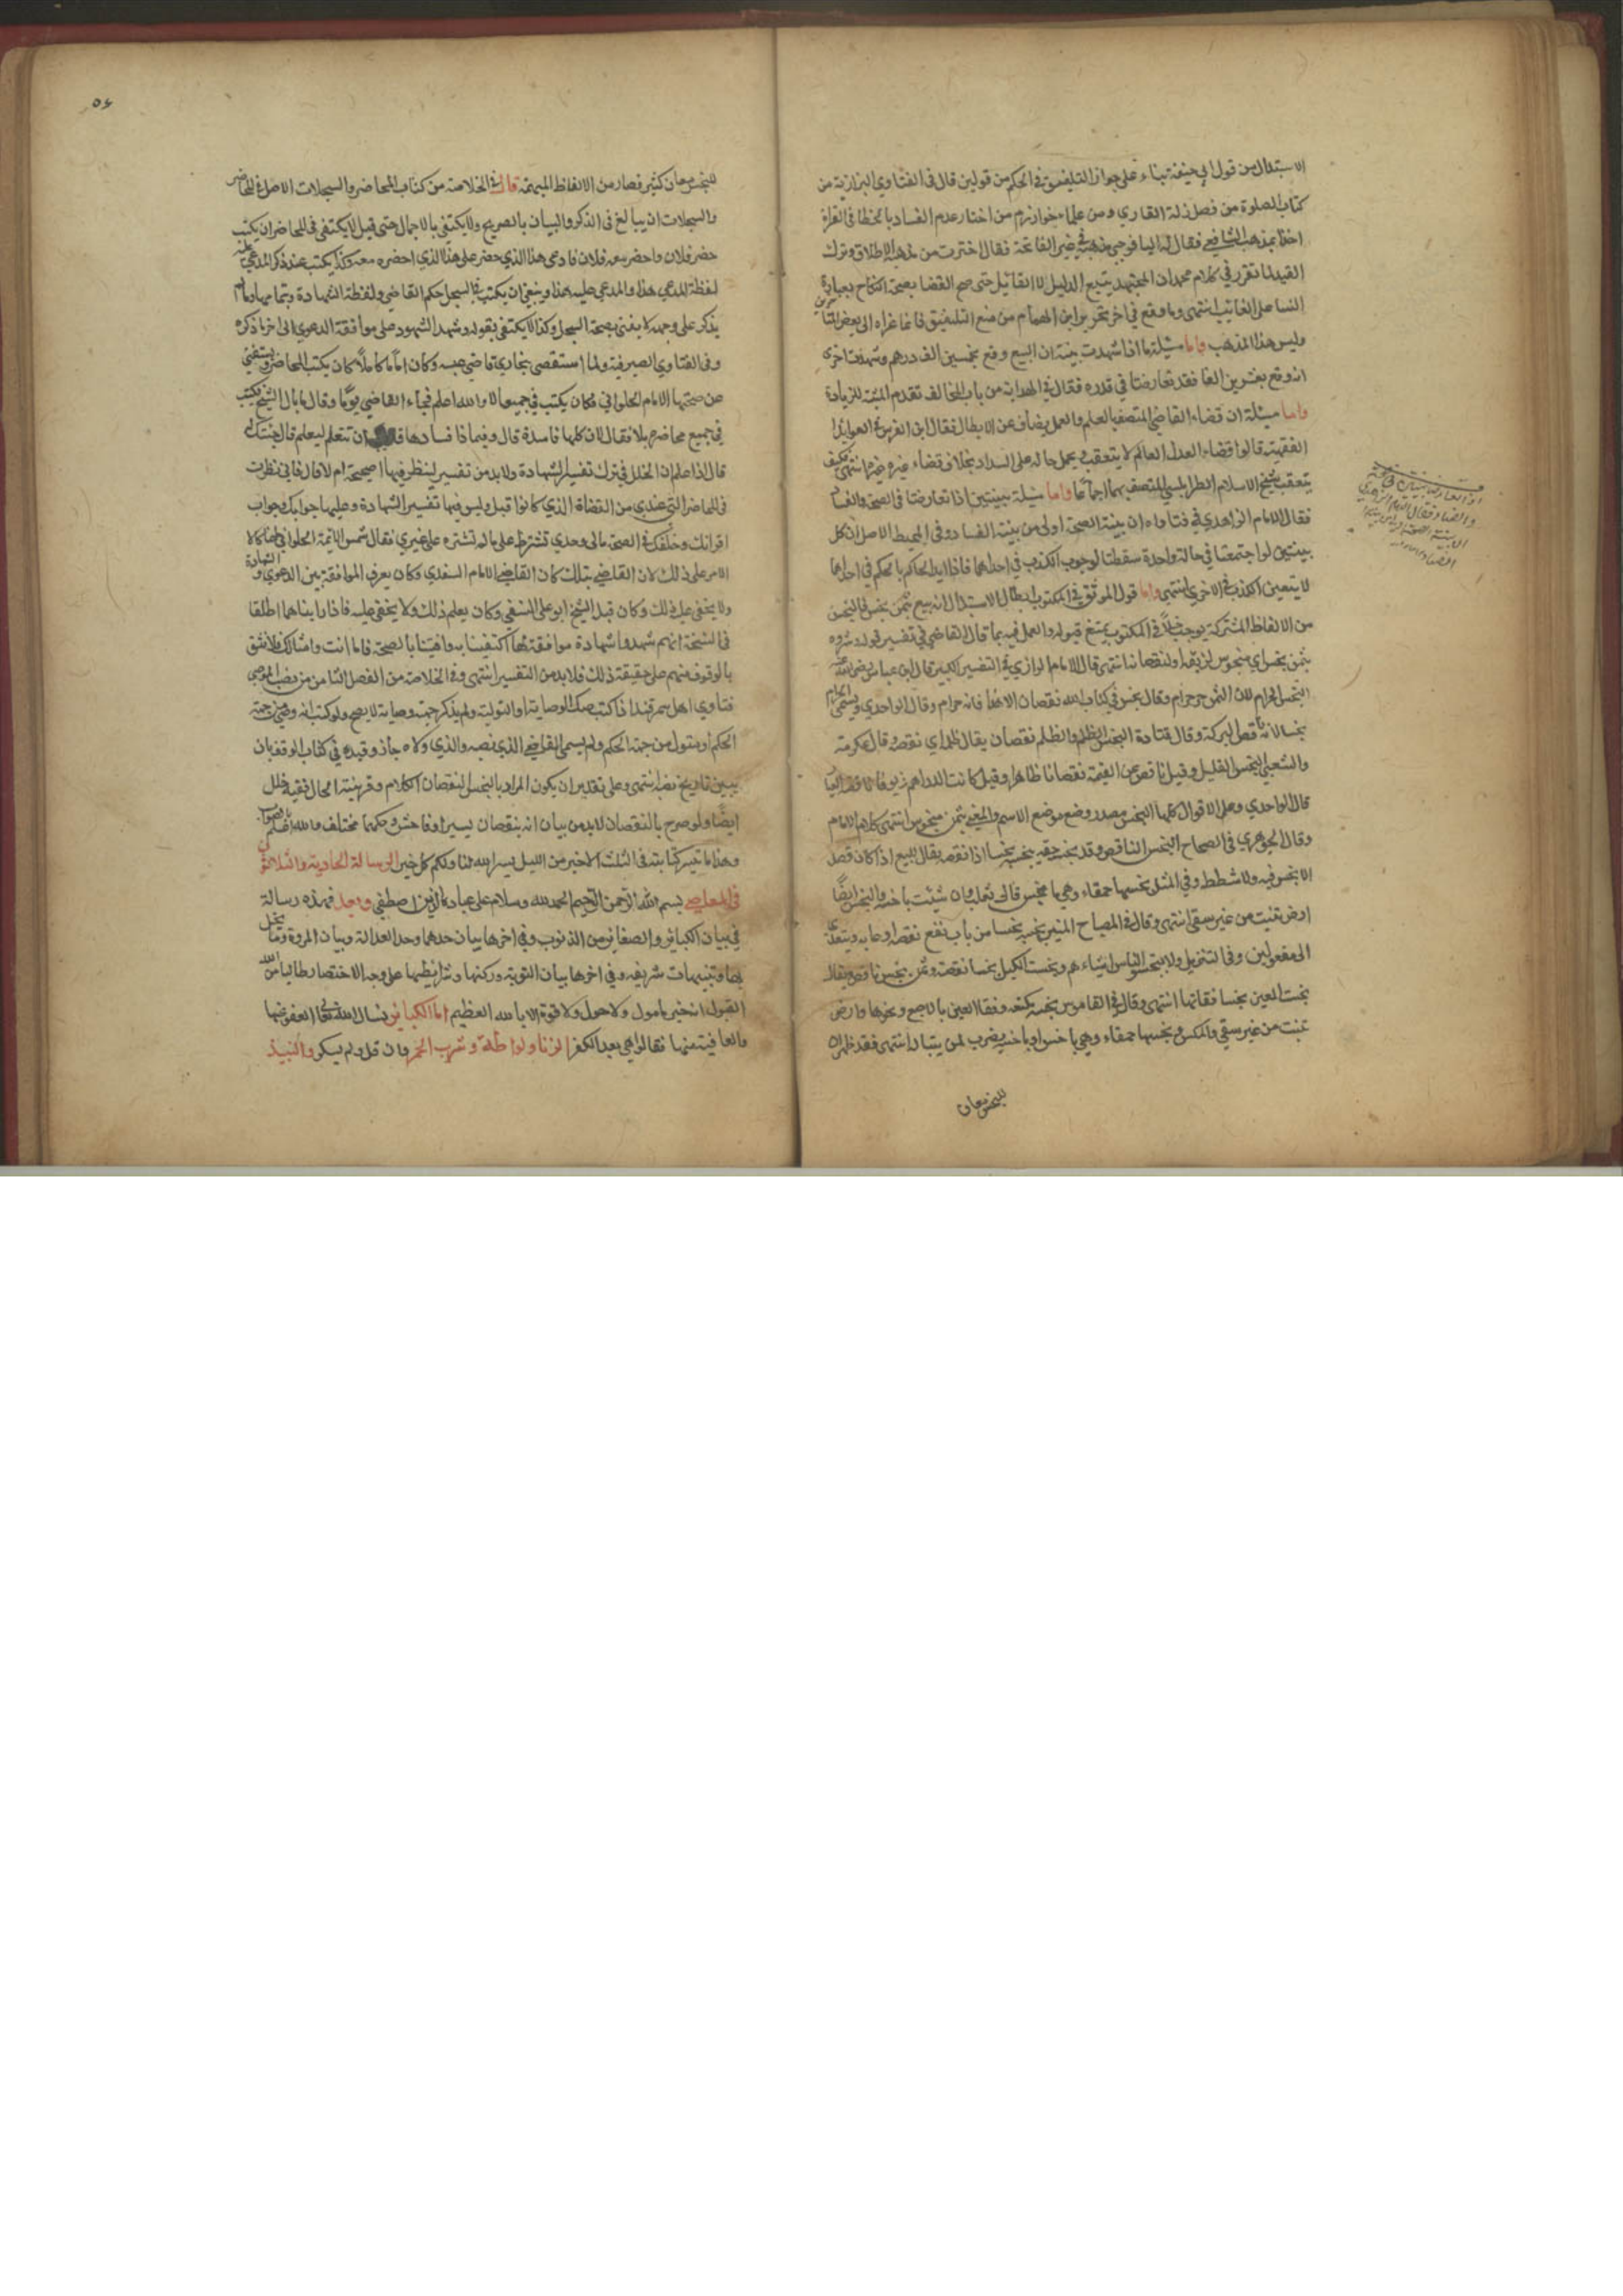 الاستبدال من قول ابي حنيفة بناء على جواز التلفيق في الحكم من قولين قال في الفتاوي البزازية من
كتاب الصلوة من فصل زلة القاري ومن علماء خوارزم من اختار عدم الفساد بالخطا في القراة
اخذا بمذهب الشافعي فقال له في غير الفاتحة فقال اخترت من مذهبه الاطلاق وترك
القيد لما تقرر في كلام محمد ان المجتهد يتبع الدليل لا القائل حتى صح القضا بصحة النكاح بعبارة
النسا على الغائب انتهى وما وقع في اخر تحرير ابن الهمام من منع التلفيق فانما عزاه الى بعض المتاخرين
وليس هذا المذهب واما مسئلة ما اذا شهدت بينة ان البيع وقع بخمسين الف درهم وشهدت اخرى
انه وقع بعشرين الفا فقد تعارضتا في قدره فقال في الهداية من باب التحالف تقدم المثبتة للزيادة
واما مسئلة ان قضاء القاضي المتصف بالعلم والعمل يضاف عن الابطال فقال ابن الغرس في الفوايد
الفقهية قالوا قضاء العدل العالم لا يتعقب ويحمل حاله على السداد بخلاف قضاء غيره انتهى فكيف
يتعقب شيخ الاسلام الطرابلسي المتصف بهما اجماعا واما مسئلة بينتين اذا تعارضتا في الصحة والفساد
فقال الامام الزاهدي في فتاواه ان بينة الصحة اولى من بينة الفساد وفي المحيط الاصل ان كل
بينتين لو اجتمعتا في حالة واحدة سقطتا لوجوب الكذب في احداهما فاذا ايد الحاكم بالحكم في احداها
لا يتعين الكذب في الاخرى انتهى واما قول الموثق في المكتوب ابطال الاستبدال انه بيع بثمن بخس فالبخس
من الالفاظ المشتركة يوجب خللا في المكتوب يمتنع قبوله والعمل فيه بما قال القاضي في تفسير قوله وشروه
بثمن بخس اي مبخوس لزيفه او لنقصانه انتهى قال الامام الرازي في التفسير الكبير قال ابن عباس رضي الله عنه
البخس الحرام لان الثمن حرام وقال بخس في كتاب الله نقصان الا هذا فانه حرام وقال الواحدي ويسمى الحرام
بخسا لانه ناقص البركة وقال قتادة البخس الظلم والظلم نقصان يقال ظلمه اي نقصه وقال عكرمة
والشعبي البخس القليل وقيل ناقص عن القيمة نقصانا ظاهرا وقيل كانت الدراهم زيوفا ناقصة العيار
قال الواحدي وعلى الاقوال كلها البخس مصدر وضع موضع الاسم والمعنى بثمن مبخوس انتهى كلام الامام
وقال الجوهري في الصحاح البخس الناقص وقد بخسه حقه يبخسه بخسا اذا نقصه يقال للبيع اذا كان قصدا
لا بخس فيه ولا شطط وفي المثل تحسبها حمقاء وهي باخس قال ثعلب وان شئت باخسة والبخس ايضا
ارض تنبت من غير سقي انتهى وقال في المصباح المنير بخسه بخسا من باب نفع نقصه او عابه ويتعدى
الى مفعولين وفي التنزيل ولا تبخسوا الناس اشياءهم وبخست الكيل بخسا نقصته وثمن بخس ناقص يقال
بخست العين بخسا فقأتها انتهى وقال في القاموس بخسه كمنعه وفقا العين بالاصبع وغيرها وارض
تنبت من غير سقي والمكس وتحسبها حمقاء وهي باخس او باخسة يضرب لمن يتباله انتهى فقد ظهر ان
للبخس معان
٥٦
للبخس معان كثيرة فصار من الالفاظ المبهمة قال في الخلاصة من كتاب المحاضر والسجلات الاصل في المحاضر
والسجلات ان يبالغ في الذكر والبيان بالصريح ولا يكتفي بالاجمال حتى قيل لا يكتفى في المحاضر ان يكتب
حضر فلان واحضر معه فلان فادعى هذا الذي حضر على هذا الذي احضره معه وكذا يكتب عند ذكر المدعى عليه
لفظة المدعي هذا والمدعى عليه هذا وينبغي ان يكتب في السجل حكم القاضي ولفظة الشهادة وتمامها وما لم
يذكر على وجهه لا يفتى بصحة السجل وكذا لا يكتفى بقوله وشهد الشهود على موافقة الدعوى الى اخر ما ذكره
وفي الفتاوي الصيرفية ولما استقصى ببخارى قاضي وكان اماما كاملا كان يكتب المحاضر ويستفتي
عن صحتها الامام الحلواني فكان يكتب في جميعها لا والله اعلم فجاء القاضي يوما وقال ما بال الشيخ يكتب
في جميع محاضري بلا فقال لان كلها فاسدة قال وفيماذا فسادها ان تتعلم ليعلم قال جئتك
قال اذا اعلم ان الخلل في ترك تفسير الشهادة ولا بد من تفسير لينظر فيها اصحيحة ام لا قال فاني نظرت
في المحاضر التي عندي من القضاة الذي كانوا قبل وليس فيها تفسير الشهادة وعليها جوابك وجواب
اقرانك في الصحة مالي وحدي تشترط على ما لم تشترطه على غيري فقال شمس الايمة الحلواني
الامر على ذلك لان القاضي بتلك كان القاضي الامام السغدي وكان يعرف الموافقة بين الدعوي والشهادة
ولا يخفى عليه ذلك وكان قبله الشيخ ابو علي النسفي وكان يعلم ذلك ولا يخفى عليه فاذا راينا هما اطلقا
في النسخة انهم شهدوا شهادة موافقة لها اكتفينا به وافتينا بالصحة فاما انت وامثالك فلا نثق
بالوقوف منهم على حقيقة ذلك فلا بد من التفسير انتهى وفي الخلاصة من الفصل الثامن من
فتاوي اهل سمرقند اذا كتب صك الوصاية او التولية ولم يذكر جهة وصايته لا يصح ولو كتب انه وصي من جهة
الحكم او متول من جهة الحكم ولم يسمى القاضي الذي نصبه والذي ولاه جاز وقيده في كتاب الوقف بان
يبين تاريخ نصبه انتهى وعلى تقدير ان يكون المراد بالبخس النقصان الكلام وقرينة الحال ففيه خلل
ايضا ولو صرح بالنقصان لا بد من بيان انه بنقصان يسير او فاحش وحكمهما مختلف والله اعلم بالصواب
وهذا ما تيسر كتابته في الثلث الاخير من الليل يسر الله لنا ولكم كل خير الرسالة الحادية والثلاثون
في المعاصي بسم الله الرحمن الرحيم الحمد لله وسلام على عباده الذين اصطفى وبعد فهذه رسالة
في بيان الكبائر والصغائر من الذنوب وفي اخرها بيان حدها وحد العدالة وبيان المروة وما يخل
بها وتنبيهات شريفة وفي اخرها بيان التوبة وركنها وشرايطها على وجه الاختصار طالبا من الله
القبول انه خير مامول ولا حول ولا قوة الا بالله العظيم اما الكبائر نسال الله تعالى العفو عنها
والعافية منها فقالوا هي بعد الكفر الزنا ولواطة وشرب الخمر وان قل ولم يسكر والنبيذ